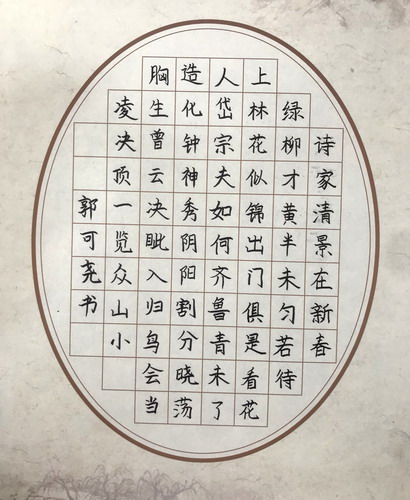 诗家清景在新春
绿柳才黄半未匀若待
上林花似锦出门俱是看花
人岱宗夫如何齐鲁青未了
造化钟神秀阴阳割分晓荡
胸生曾云决眦入归鸟会当
凌决顶一览众山小
郭可尧书